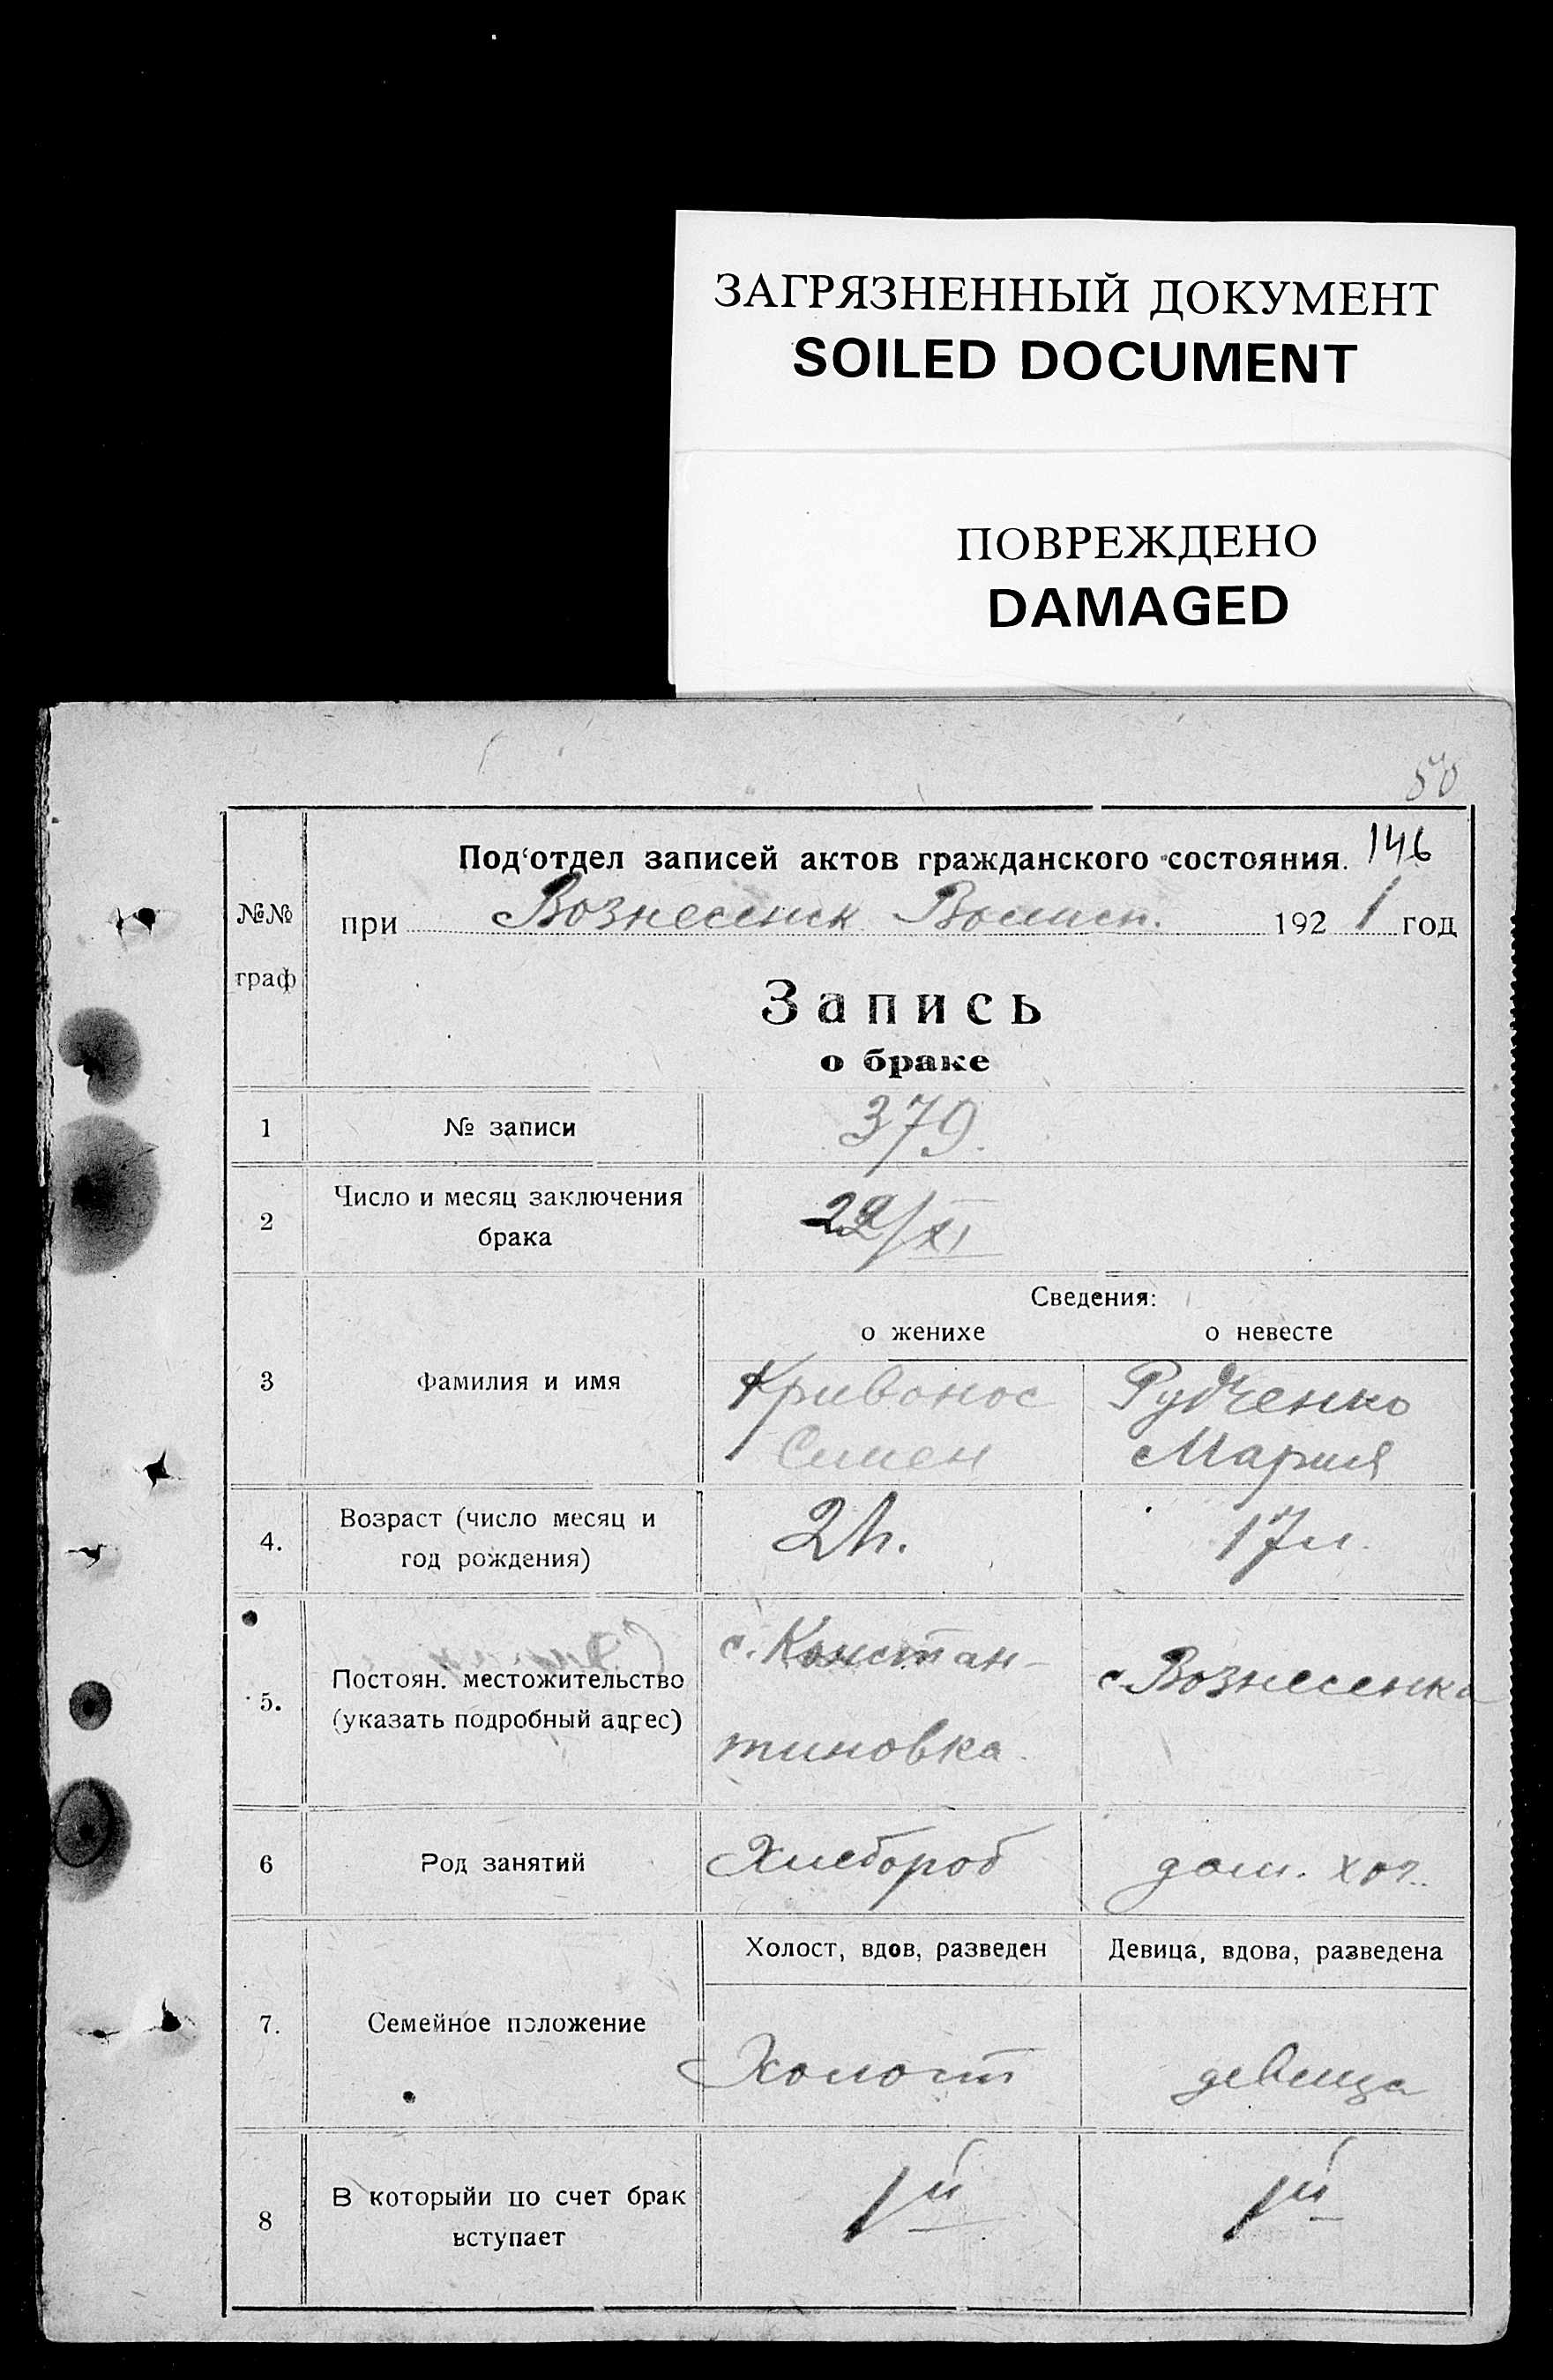 ЗАГРЯЗНЕННЫЙ ДОКУМЕНТ
SOILED DOCUMENT
ПОВРЕЖДЕНО
DAMAGED
50
146
Под‘отдел записей актов гражданского состояния.
№№ граф
при Вознесенск Волисп. 1921 год
Запись
о браке
1 № записи 379.
2 Число и месяц заключения
брака 22/XI
Сведения:
о женихе о невесте
3 Фамилия и имя Кривонос Рудченко
Симен Мария
4. Возраст (число месяц и
год рождения) 17л.
5. Постоян. местожительство
(указать подробный адрес)
с. Констан-
тиновка.
с. Вознесенка
6 Род занятий Хлебороб дом. хоз.
Холост, вдов, разведен Девица, вдова, разведена
7. Семейное положение
Холост девица
8 В которыйи по счет брак
вступает 1й 1й